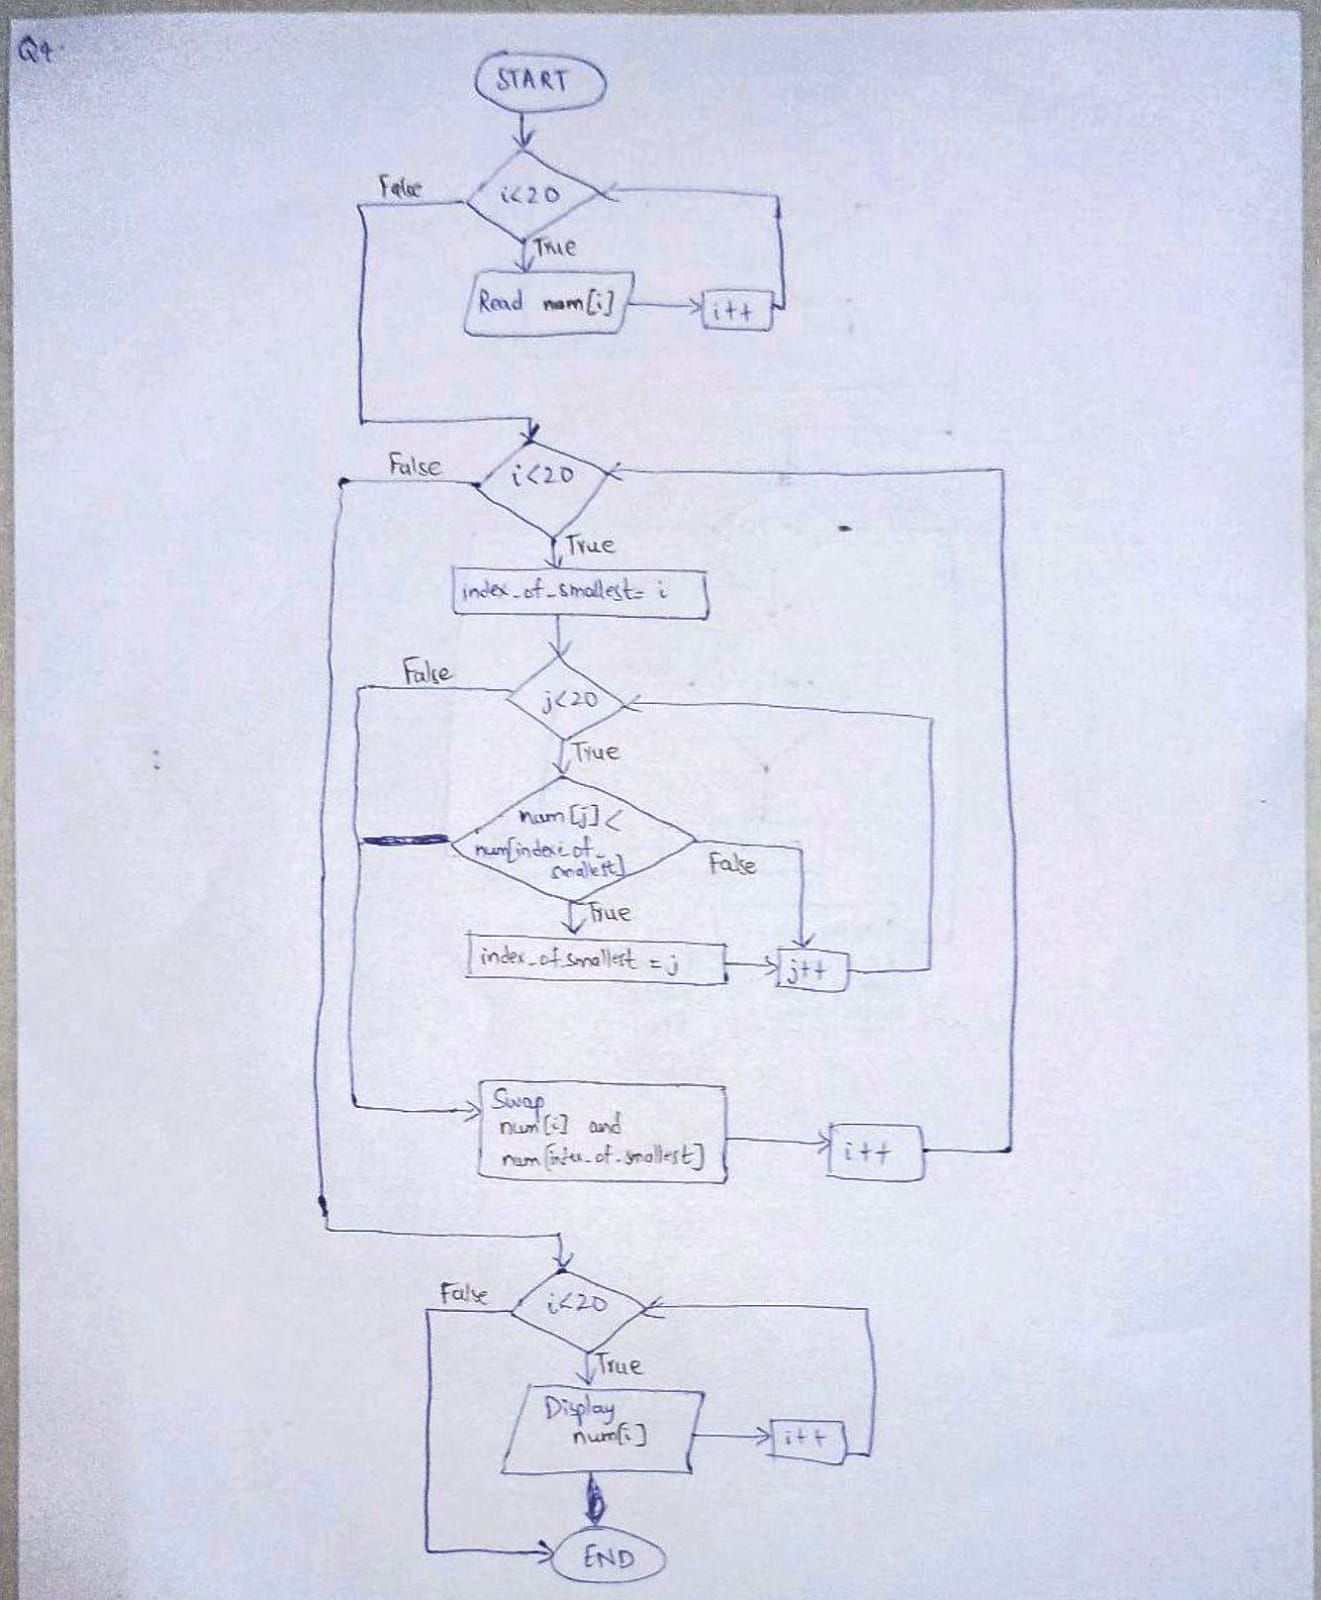 Q4.
START
i<20
False
True
Read num[i]
i++
i<20
False
True
index_of_smallest= i
False
j<20
True
num[j]<
num[index_of_
smallest]
False
True
index_of_smallest = j
j++
Swap
num[i] and
num[index_of_smallest]
i++
False
i<20
True
Display
num[i]
i++
END